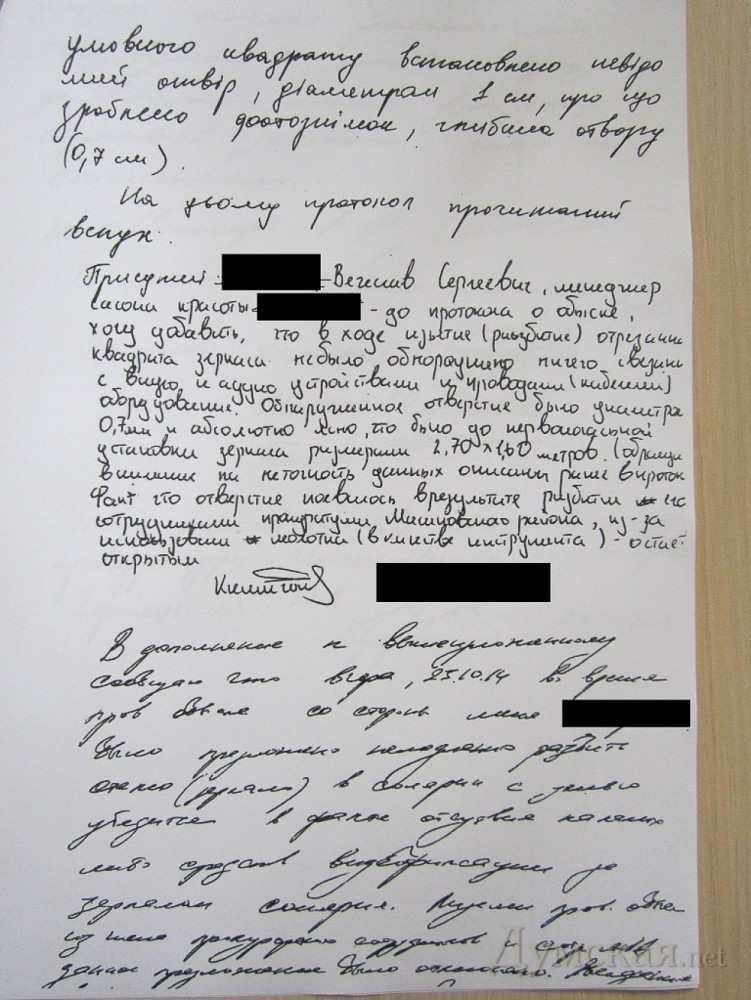 умовного квадрату встановлено невідо
мий отвір, діаметром 1 см, про що
зроблено фотознімок, глибина отвору
(0,7 см).
На цьому протокол прочитаний
вслух.
Присутній Вячеслав Сергеевич, менеджер
салона красоты - до протокола о обыске,
хочу добавить, что в ходе изъятие (разбитие) отрезание
квадрата зеркала небыло обнаружено ничего связано
с видио и аудио устройствами и проводами (кабелями)
оборудование. Обнаруженное отверстие было диаметра
0,7мм и абсолютно ясно, что было до первоначальной
установки зеркала размерами 2,70 х 1,60 метров. (обращаю
внимание на неточность данных описаны ранее в проток
Факт что отверстие появилось врезультате разбития его
сотрудниками прокуратуры Малиновского района, из-за
использования молотка (в качестве инструмента) - остает
открытым
В дополнение к вышеизложенному
сообщаю что вчера, 23.10.14 во время
пров обыска со стороны меня
было предложено немедленно разбить
стекло (зеркало) в солярии с целью
убедится в факте отсутвия каких
либо средств видеофиксации за
зеркалом солярия. пров. обыск
из числа прокурорских сотрудников и
данное предложение было отклонено.
Думская.net